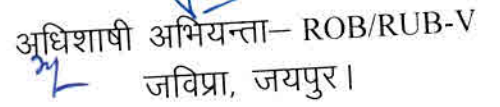 अधिशाषी अभियन्ता– ROB/RUB-V
जविप्रा, जयपुर।